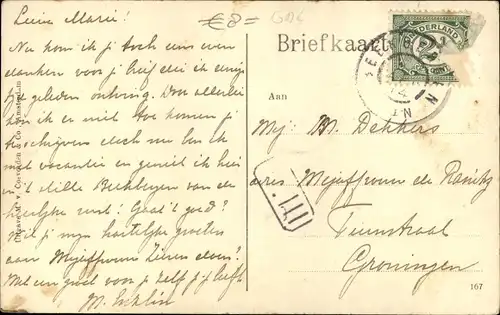 Lieve Marie!
Nu kom ik je toch eens even
danken voor je brief die ik eenige
tijd geleden ontving. Door allerlei
kon ik er niet toe komen je
te schrijven doch nu ben ik
met vacantie en geniet ik hier
in 't stille Beekbergen van de
heerlijke rust! Gaat 't goed?
Wil je mijn hartelijke groeten
aan Mejuffrouw
Met een groet voor je zelf je liefh.
M.
€ 8=
G16
Briefkaart
NEDERLAND
Aan
Mej: M. Dekkers
adres Mejuffrouw de
straat
Groningen
167